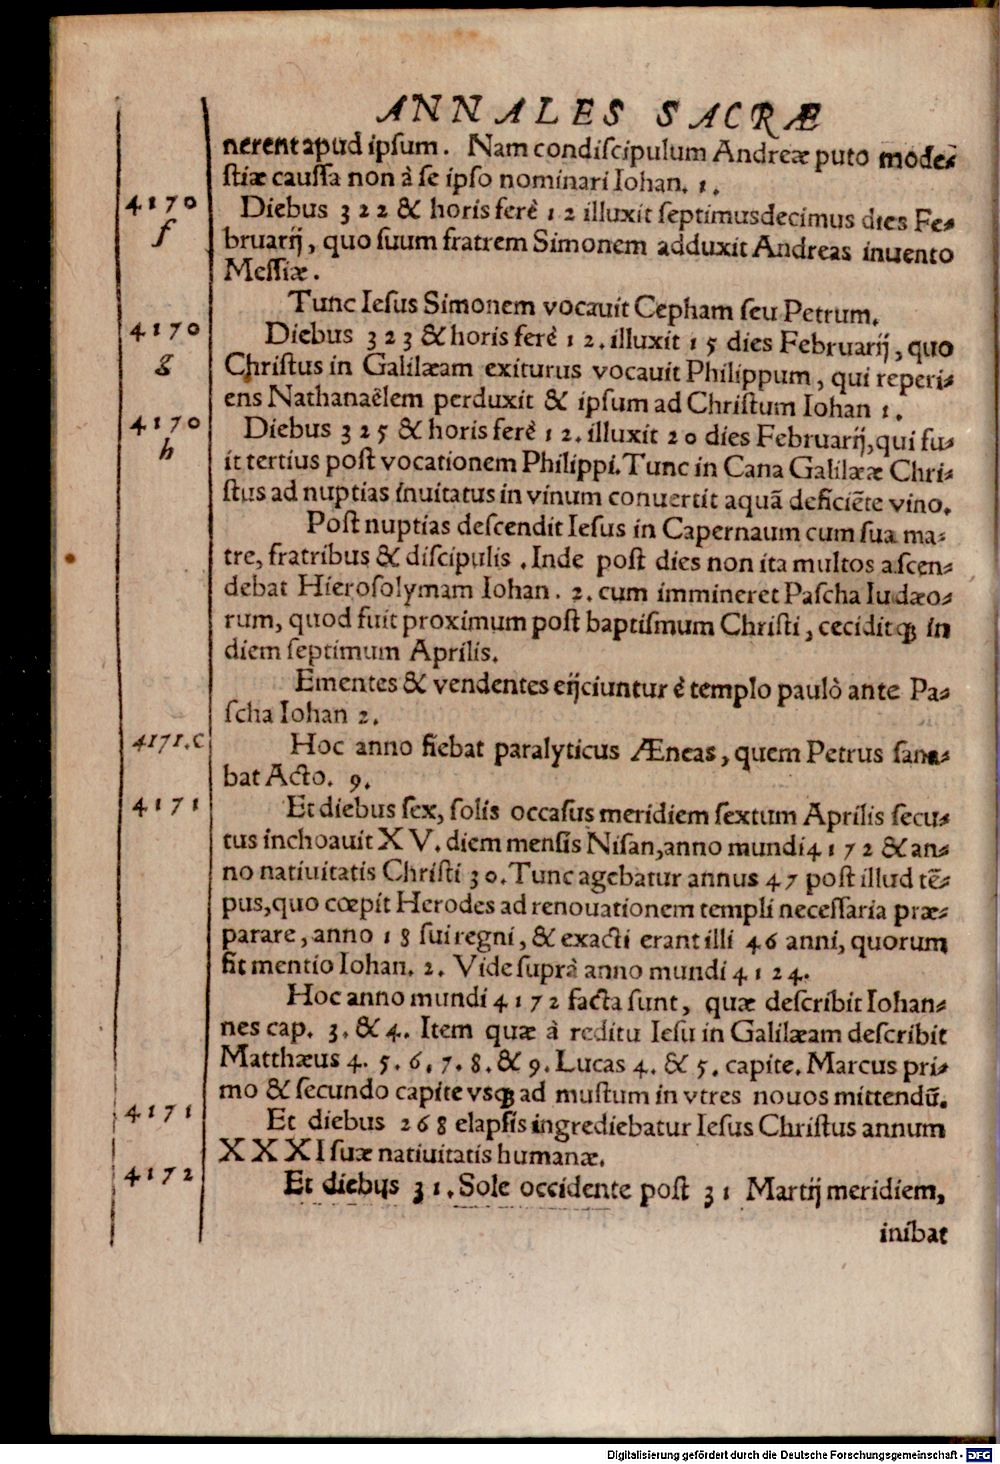 ANNALES SACRÆ
nerent apud ipsum. Nam condiscipulum Andreæ puto mode⸗
ſtiæ cauſſa non à ſe ipſo nominari Iohan. 1.
4170 Diebus 322 & horis ferè 12 illuxit ſeptimusdecimus dies Fe⸗
f bruarij, quo ſuum fratrem Simonem adduxit Andreas inuento
Meſſiæ.
Tunc Ieſus Simonem vocauit Cepham ſeu Petrum.
4170 Diebus 323 & horis ferè 12. illuxit 15 dies Februarij, quo
g Chriſtus in Galilæam exiturus vocauit Philippum, qui reperi⸗
ens Nathanaëlem perduxit & ipſum ad Chriſtum Iohan 1.
4170 Diebus 325 & horis ferè 12. illuxit 20 dies Februarij, qui fu⸗
h it tertius poſt vocationem Philippi. Tunc in Cana Galilææ Chri⸗
ſtus ad nuptias inuitatus in vinum conuertit aquã deficiẽte vino.
Poſt nuptias deſcendit Ieſus in Capernaum cum ſua ma⸗
tre, fratribus & diſcipulis. Inde poſt dies non ita multos aſcen⸗
debat Hieroſolymam Iohan. 2. cum immineret Paſcha Iudæo⸗
rum, quod fuit proximum poſt baptiſmum Chriſti, ceciditq́ꝫ in
diem ſeptimum Aprilis.
Ementes & vendentes eijciuntur è templo paulò ante Pa⸗
ſcha Iohan 2.
4171.c Hoc anno fiebat paralyticus Æneas, quem Petrus ſana⸗
bat Acto. 9.
4171 Et diebus ſex, ſolis occaſus meridiem ſextum Aprilis ſecu⸗
tus inchoauit XV. diem menſis Niſan, anno mundi 4172 & an⸗
no natiuitatis Chriſti 30. Tunc agebatur annus 47 poſt illud tẽ⸗
pus, quo cœpit Herodes ad renouationem templi neceſſaria præ⸗
parare, anno 18 ſui regni, & exacti erant illi 46 anni, quorum
fit mentio Iohan. 2. Vide ſuprà anno mundi 4124.
Hoc anno mundi 4172 facta ſunt, quæ deſcribit Iohan⸗
nes cap. 3. & 4. Item quæ à reditu Ieſu in Galilæam deſcribit
Matthæus 4. 5. 6. 7. 8. & 9. Lucas 4. & 5. capite. Marcus pri⸗
mo & ſecundo capite vsqꝫ ad muſtum in vtres nouos mittendũ.
4171 Et diebus 268 elapſis ingrediebatur Ieſus Chriſtus annum
XXXI ſuæ natiuitatis humanæ.
4172 Et diebus 31. Sole occidente poſt 31 Martij meridiem,
inibat
Digitalisierung gefördert durch die Deutsche Forschungsgemeinschaft - DFG